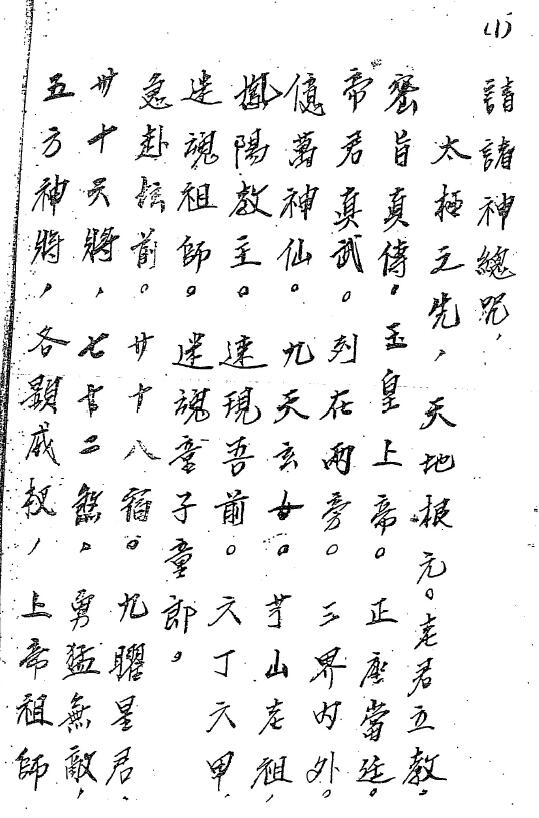 (1)
請諸神總咒，
太極之先，天地根元。老君立教。
密旨真傳。玉皇上帝。正座當廷。
帝君真武。列在兩旁。三界內外。
億萬神仙。九天玄女。芧山老祖，
鳳陽教主。速現吾前。六丁六甲，
迷魂祖師。迷魂童子童郎。
急赴坛前。廿十八宿。九曜星君，
卅十天將，七十二煞。勇猛無敵，
五方神將，各顯威权，上帝祖師